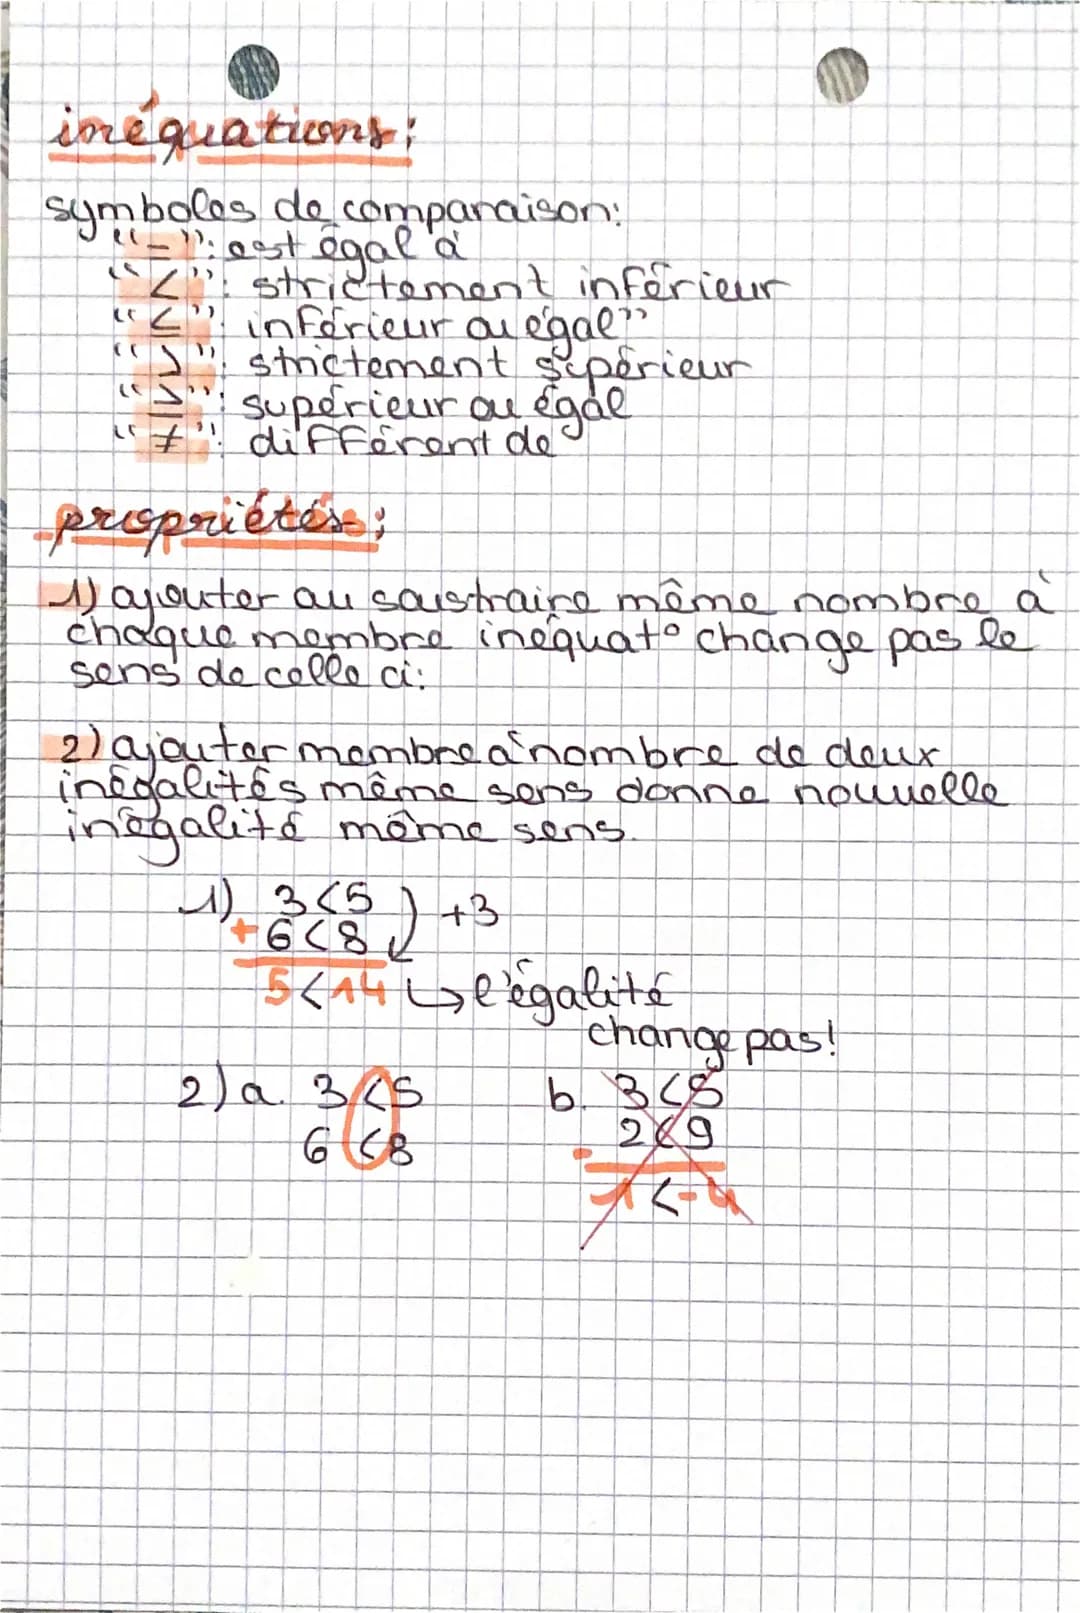 inéquations :
symboles de comparaison:
"=": est égal à
"<": strictement inférieur
"≤": inférieur ou égal"
">": strictement supérieur
"≥": supérieur ou égal
"≠": différent de
propriétés :
1) ajouter ou soustraire même nombre à
chaque membre inéquat° change pas le
sens de celle ci:
2) ajouter membre à nombre de deux
inégalités même sens donne nouvelle
inégalité même sens.
1) 3<5
+6<8 +3
5<14 ↳ l'égalité
change pas!
2) a. 3<5 b. 3<5
6<8 2<9
- 1<-4